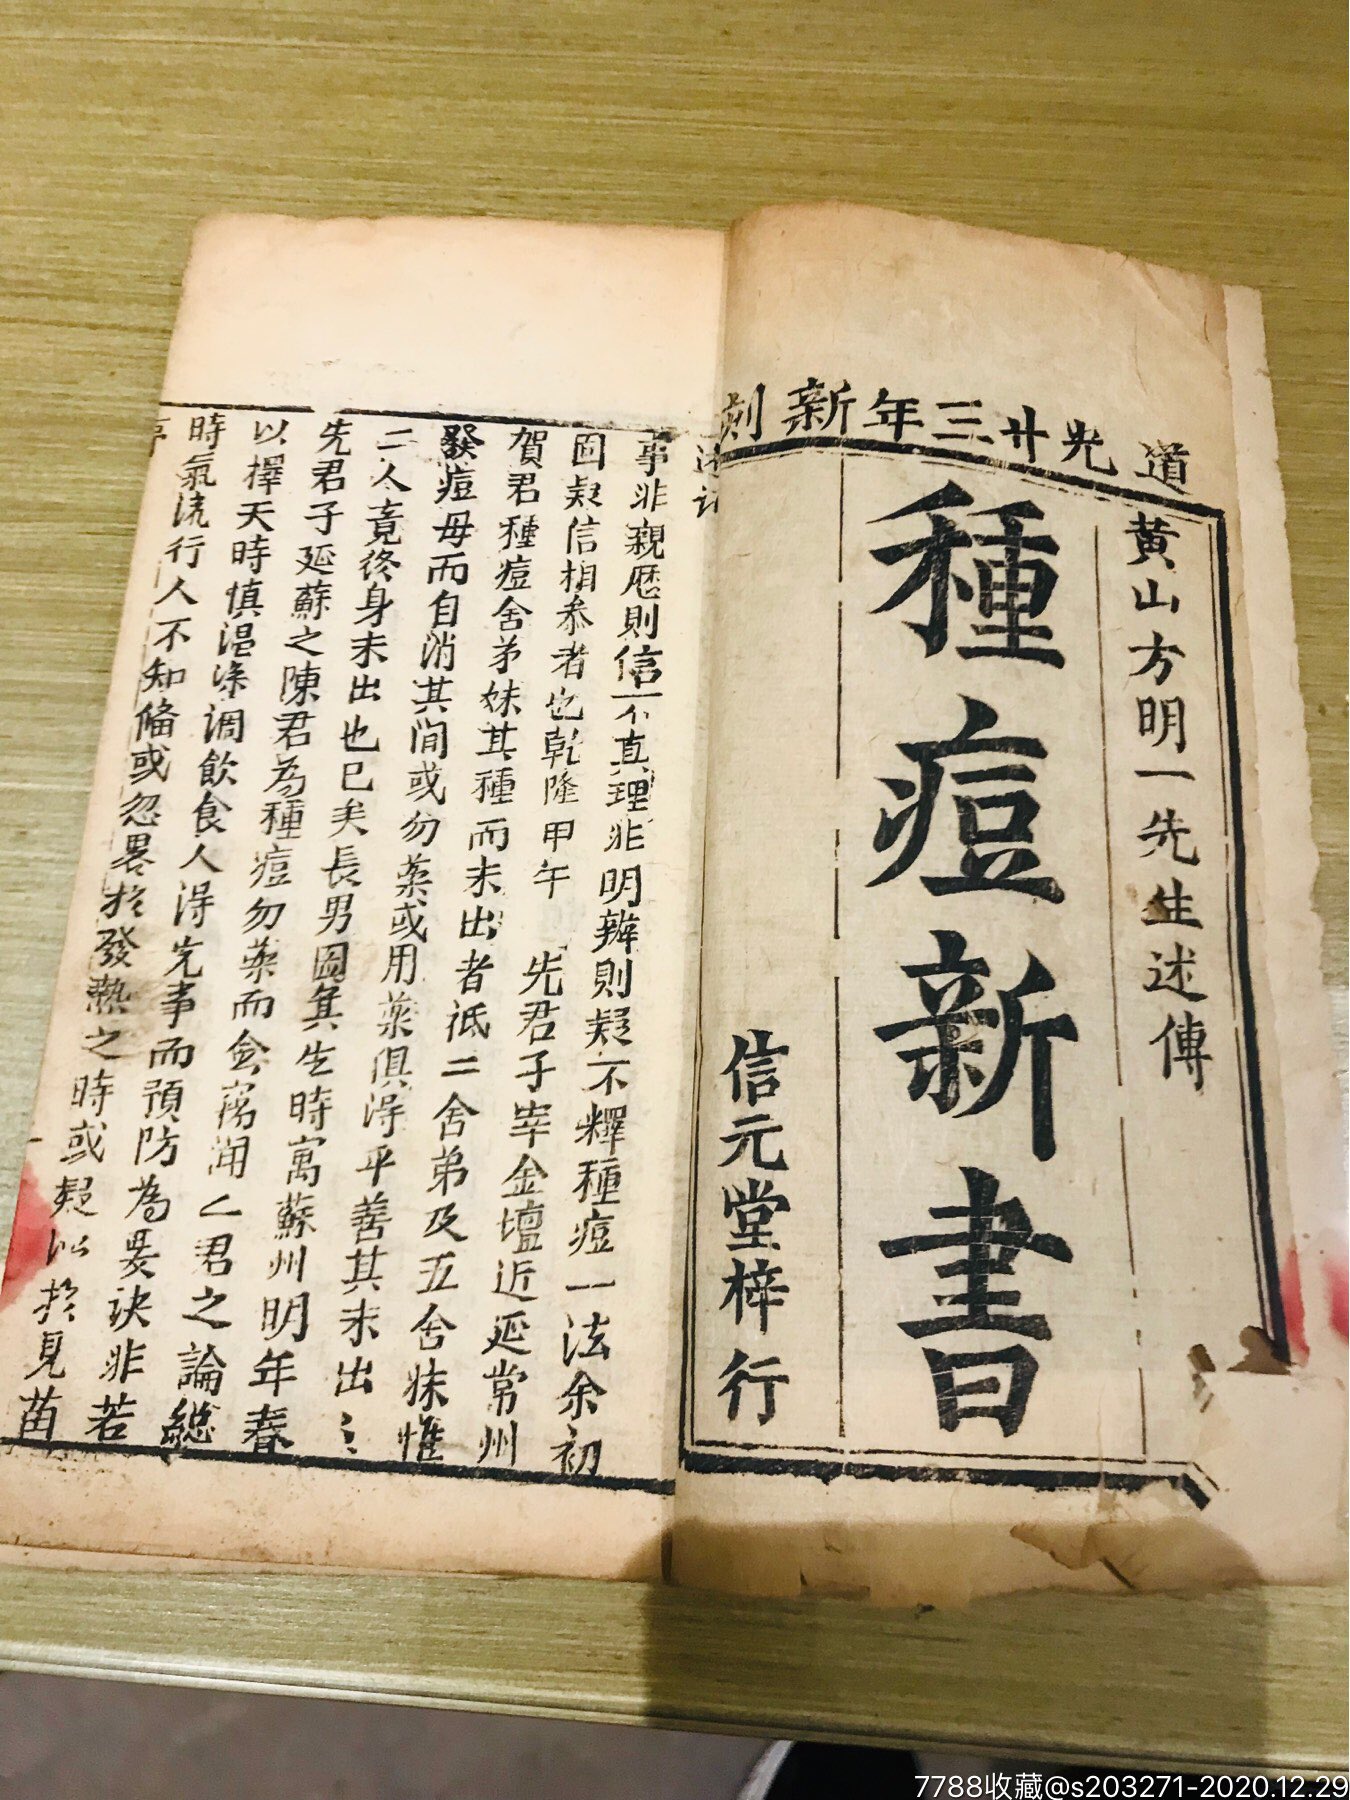 道光廿三年新刻
黃山方明一先生述傳
種痘新書
信元堂梓行
事非親歷則信不真理非明辨則疑不釋種痘一法余初
固疑信相參者也乾隆甲午 先君子宰金壇近延常州
賀君種痘舍弟妹其種而未出者祗二舍弟及五舍妹惟
發痘母而自消其間或勿藥或用藥俱得平善其未出之
二人竟終身未出也已矣長男圖箕生時寓蘇州明年春
先君子延蘇之陳君為種痘勿藥而會窩聞乙君之論總
以擇天時慎溫涼調飲食人得先事而預防為要訣非若
時氣流行人不知偹或忽畧於發熱之時或疑似於見苗